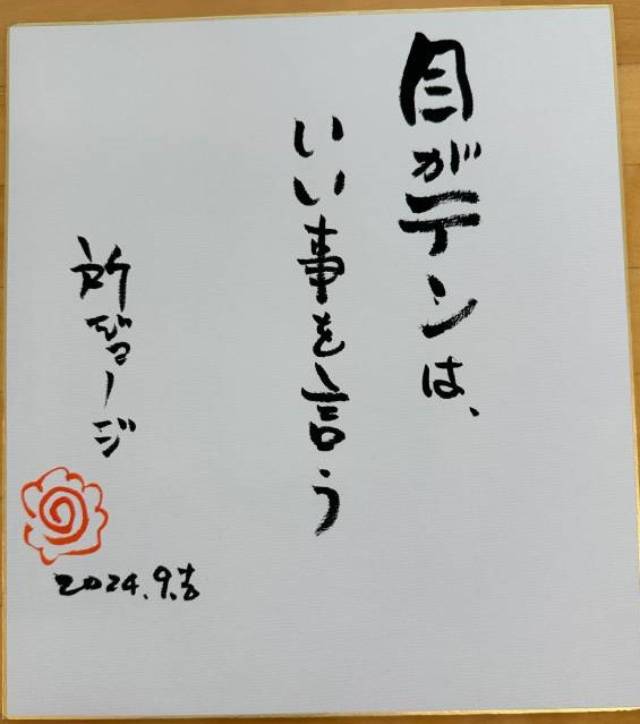 目がテンは、
いい事を言う
所ジョージ
2024.9.吉